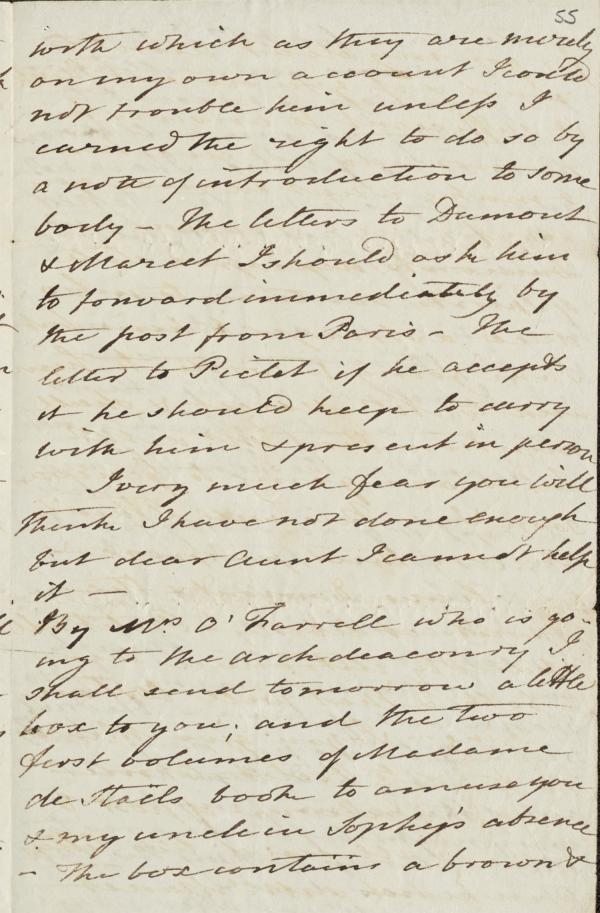 55
with which as they are merely
on my own account I could
not trouble him unless I
earned the right to do so by
a note of introduction to some
body – The letters to Dumont
& Marcet I should ask him
to forward immediately by
the post from Paris – The
letter to Pictet if he accepts
it he should keep to carry
with him & present in person
I very much fear you will
think I have not done enough
but dear Aunt I cannot help
it –
By Mrs O'Farrell who is go-
ing to the archdeaconry I
shall send tomorrow a little
box to you; and the two
first volumes of Madame
de Staëls book to amuse you
& my uncle in Sophy's absence
– The box contains a brown &